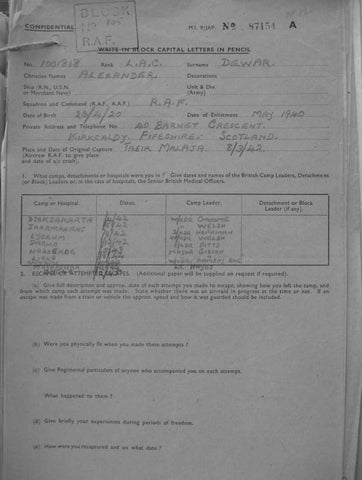 BLOCK
No 105
R.A.F.
CONFIDENTIAL
M.I. 9/JAP. No 87154 A
WRITE IN BLOCK CAPITAL LETTERS IN PENCIL.
No. 1001818 Rank L.A.C. Surname DEWAR.
Christian Names ALEXANDER. Decorations
Ship (R.N., U.S.N. or Merchant Navy) Unit & Div. (Army)
Squadron and Command (R.A.F., A.A.F.) R.A.F.
Date of Birth 20/4/20 Date of Enlistment MAY 1940
Private Address and Telephone No. 40 BARNET CRESCENT.
KIRKCALDY, FIFESHIRE. SCOTLAND.
Place and Date of Original Capture MALAJA. 8/3/42.
(Aircrew R.A.F. to give place
and date of a/c crash).
1. What camps, detachments or hospitals were you in? Give dates and names of the British Camp Leaders, Detachment
(or Block) Leaders or, in the case of hospitals, the Senior British Medical Officers.
Camp or Hospital. Dates. Camp Leader. Detachment or Block Leader (if any).
DJOKJAKARTA /42 W/CDR
JAARMARKT /42 WELSH
LYCEUM /42
DARMO /42 PITTS
/43 MAJOR GIBSON
W/CDR
LT.
2. ESCAPES OR ATTEMPTED ESCAPES. (Additional paper will be supplied on request if required).
(a) Give full description and approx. date of each attempt you made to escape, showing how you left the camp, and
from which camp each attempt was made. State whether there was an air-raid in progress at the time or not. If an
escape was made from a train or vehicle the approx. speed and how it was guarded should be included.
(b) Were you physically fit when you made these attempts?
(c) Give Regimental particulars of anyone who accompanied you on each attempt.
What happened to them?
(d) Give briefly your experiences during periods of freedom.
(e) How were you recaptured and on what date?